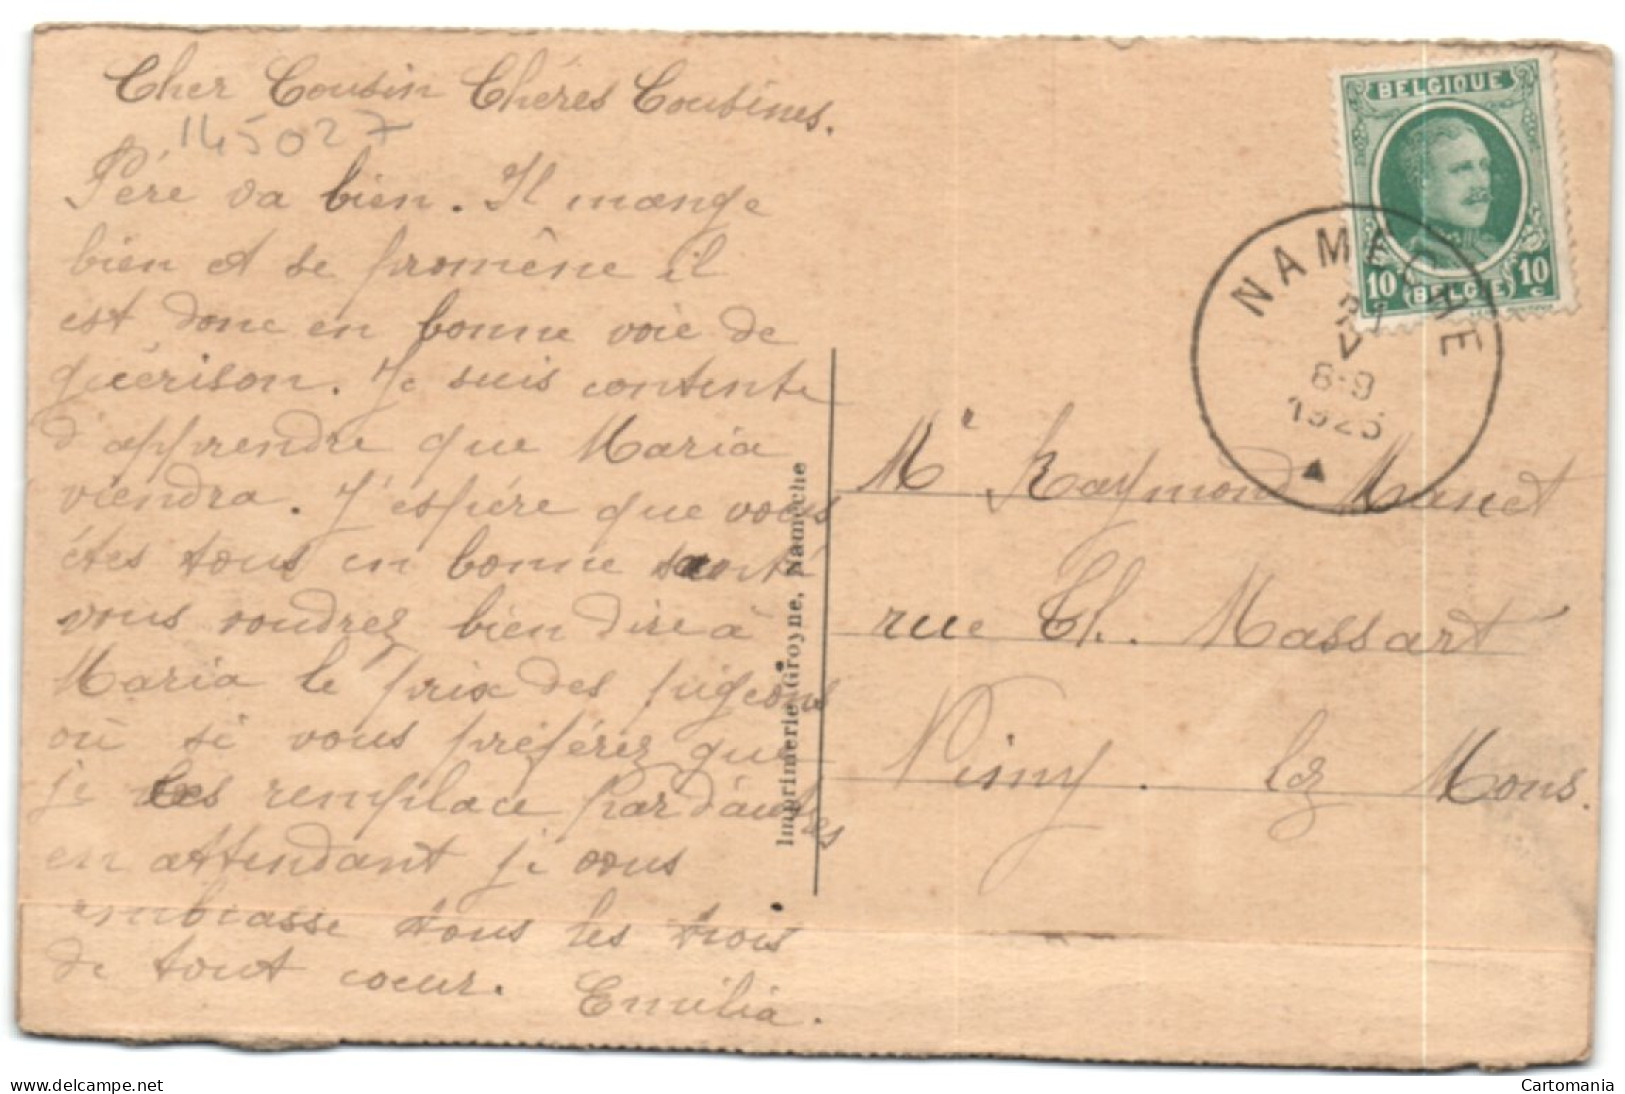 Cher Cousin Chéres Cousines.
145027
Pére va bien. Il mange
bien et se promêne il
est donc en bonne voie de
guérison. Je suis contente
d'apprendre que Maria
viendra. J'espére que vous
êtes tous en bonne santé
vous voudrez bien dire à
Maria le prix des pigeons
où si vous préférez que
je les remplace par d'autres
en attendant je vous
embrasse tous les trois
de tout coeur. Emilia.
Imprimerie Groyne, Namêche
BELGIQUE
10 BELGIË 10 c
NAMECHE
V
8-9
1925
Mr Raymond Manet
rue Th. Massart
Nimy. lez Mons.
delcampe.net
Cartomania